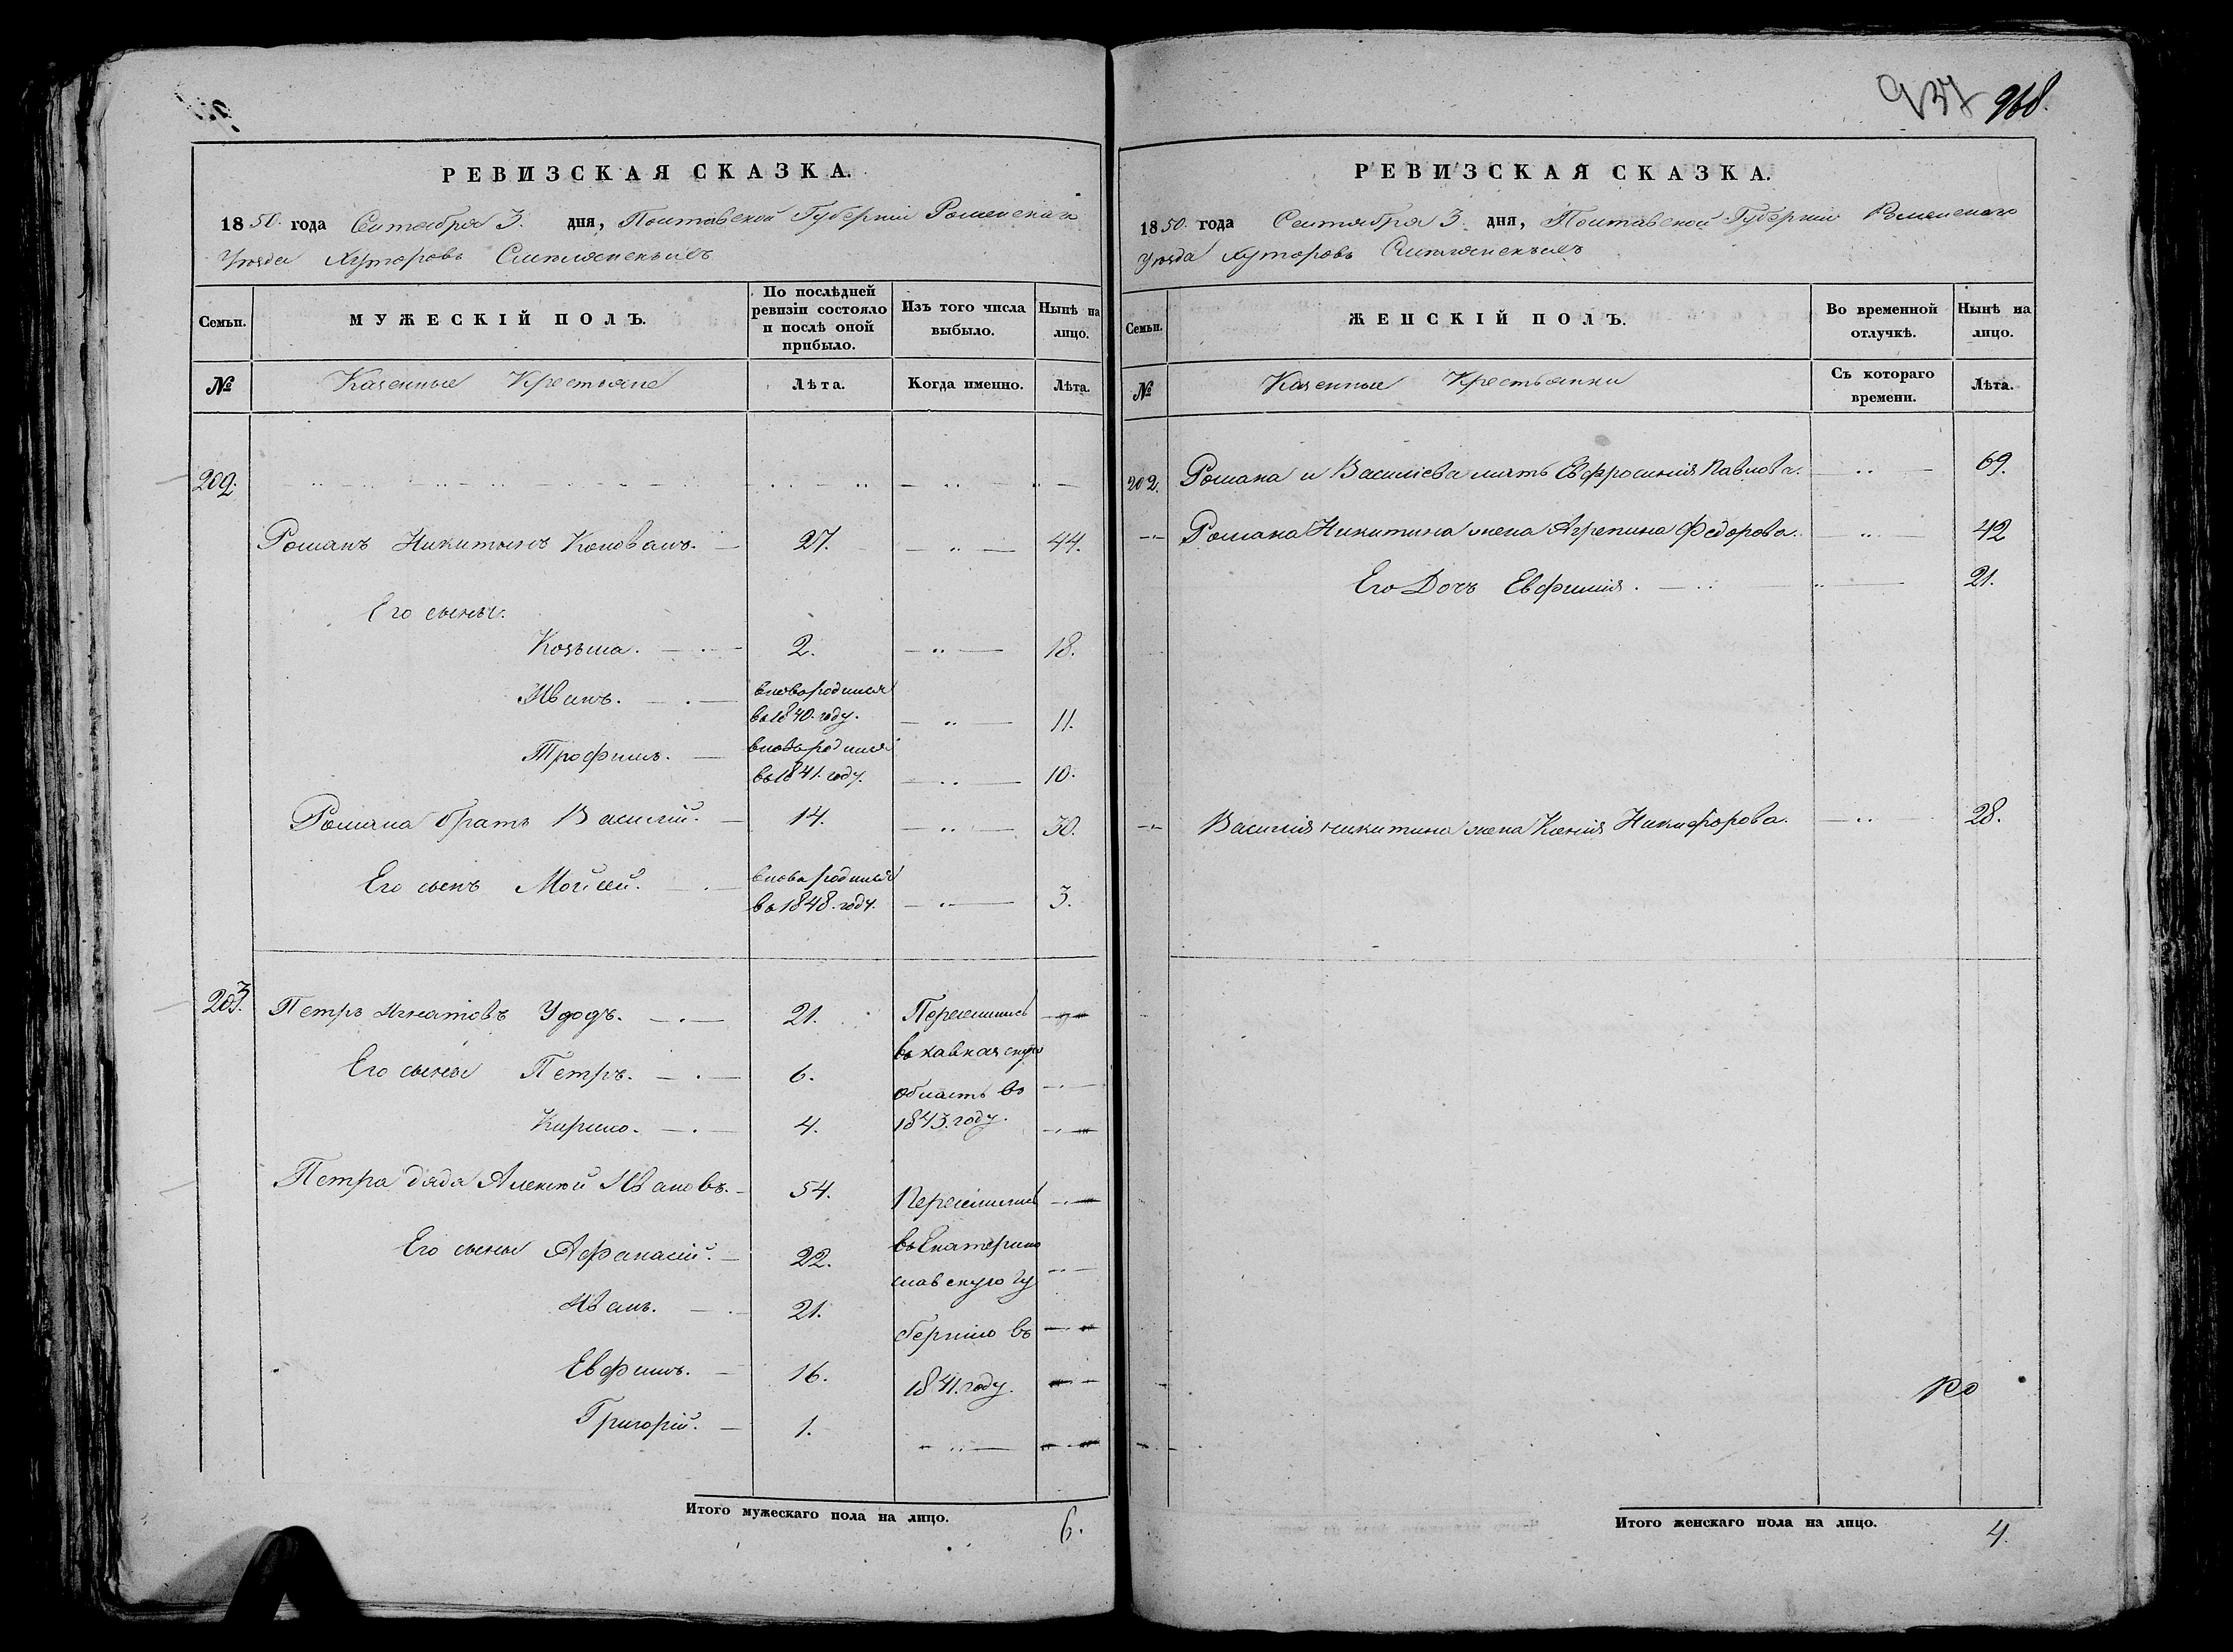 РЕВИЗСКАЯ СКАЗКА.
1850. года Сентября 3. дня, Полтавской Губерніи Роменскаго
Уѣзда Хуторовъ
Семьи.
МУЖЕСКІЙ ПОЛЪ.
По послѣдней ревизіи состояло и послѣ оной прибыло.
Изъ того числа выбыло.
Нынѣ на лицо.
№
Казенные Крестьяне
Лѣта.
Когда именно.
Лѣта.
202.
Романъ Никитинъ Коновалъ. 27. 44.
Его сыны:
Козьма. 2. 18.
Иванъ. вновь родился въ 1840. году. 11.
Трофимъ. вновь родился въ 1841. году. 10.
Романа братъ Василій. 14. 30.
Его сынъ Мойсей. вновь родился въ 1848. году. 3.
203.
Петръ Игнатовъ Удодъ. 21. Переселились
въ кавказскую
Его сыны Петръ. 6.
область въ
Кирило. 4. 1843. году.
Петра дядя Алексѣй Ивановъ. 54. Переселились
Его сыны Афанасій. 22. въ Екатерино
славскую гу
Иванъ. 21.
бернію въ
Евфимъ. 16. 1841. году.
Григорій. 1.
Итого мужескаго пола на лицо. 6.
937 968.
РЕВИЗСКАЯ СКАЗКА.
1850. года Сентября 3. дня, Полтавской Губерніи Роменскаго
Уѣзда Хуторовъ
Семьи.
ЖЕНСКІЙ ПОЛЪ.
Во временной отлучкѣ.
Нынѣ на лицо.
№
Казенные Крестьянки
Съ котораго времени.
Лѣта.
202. Романа и Василіева мать Евфросинія Павлова. 69.
Романа Никитина жена Агрепина Федорова. 42
Его Дочь Евфимія. 21.
Василія никитина жена Ксенія Никифорова. 28.
Итого женскаго пола на лицо. 4.